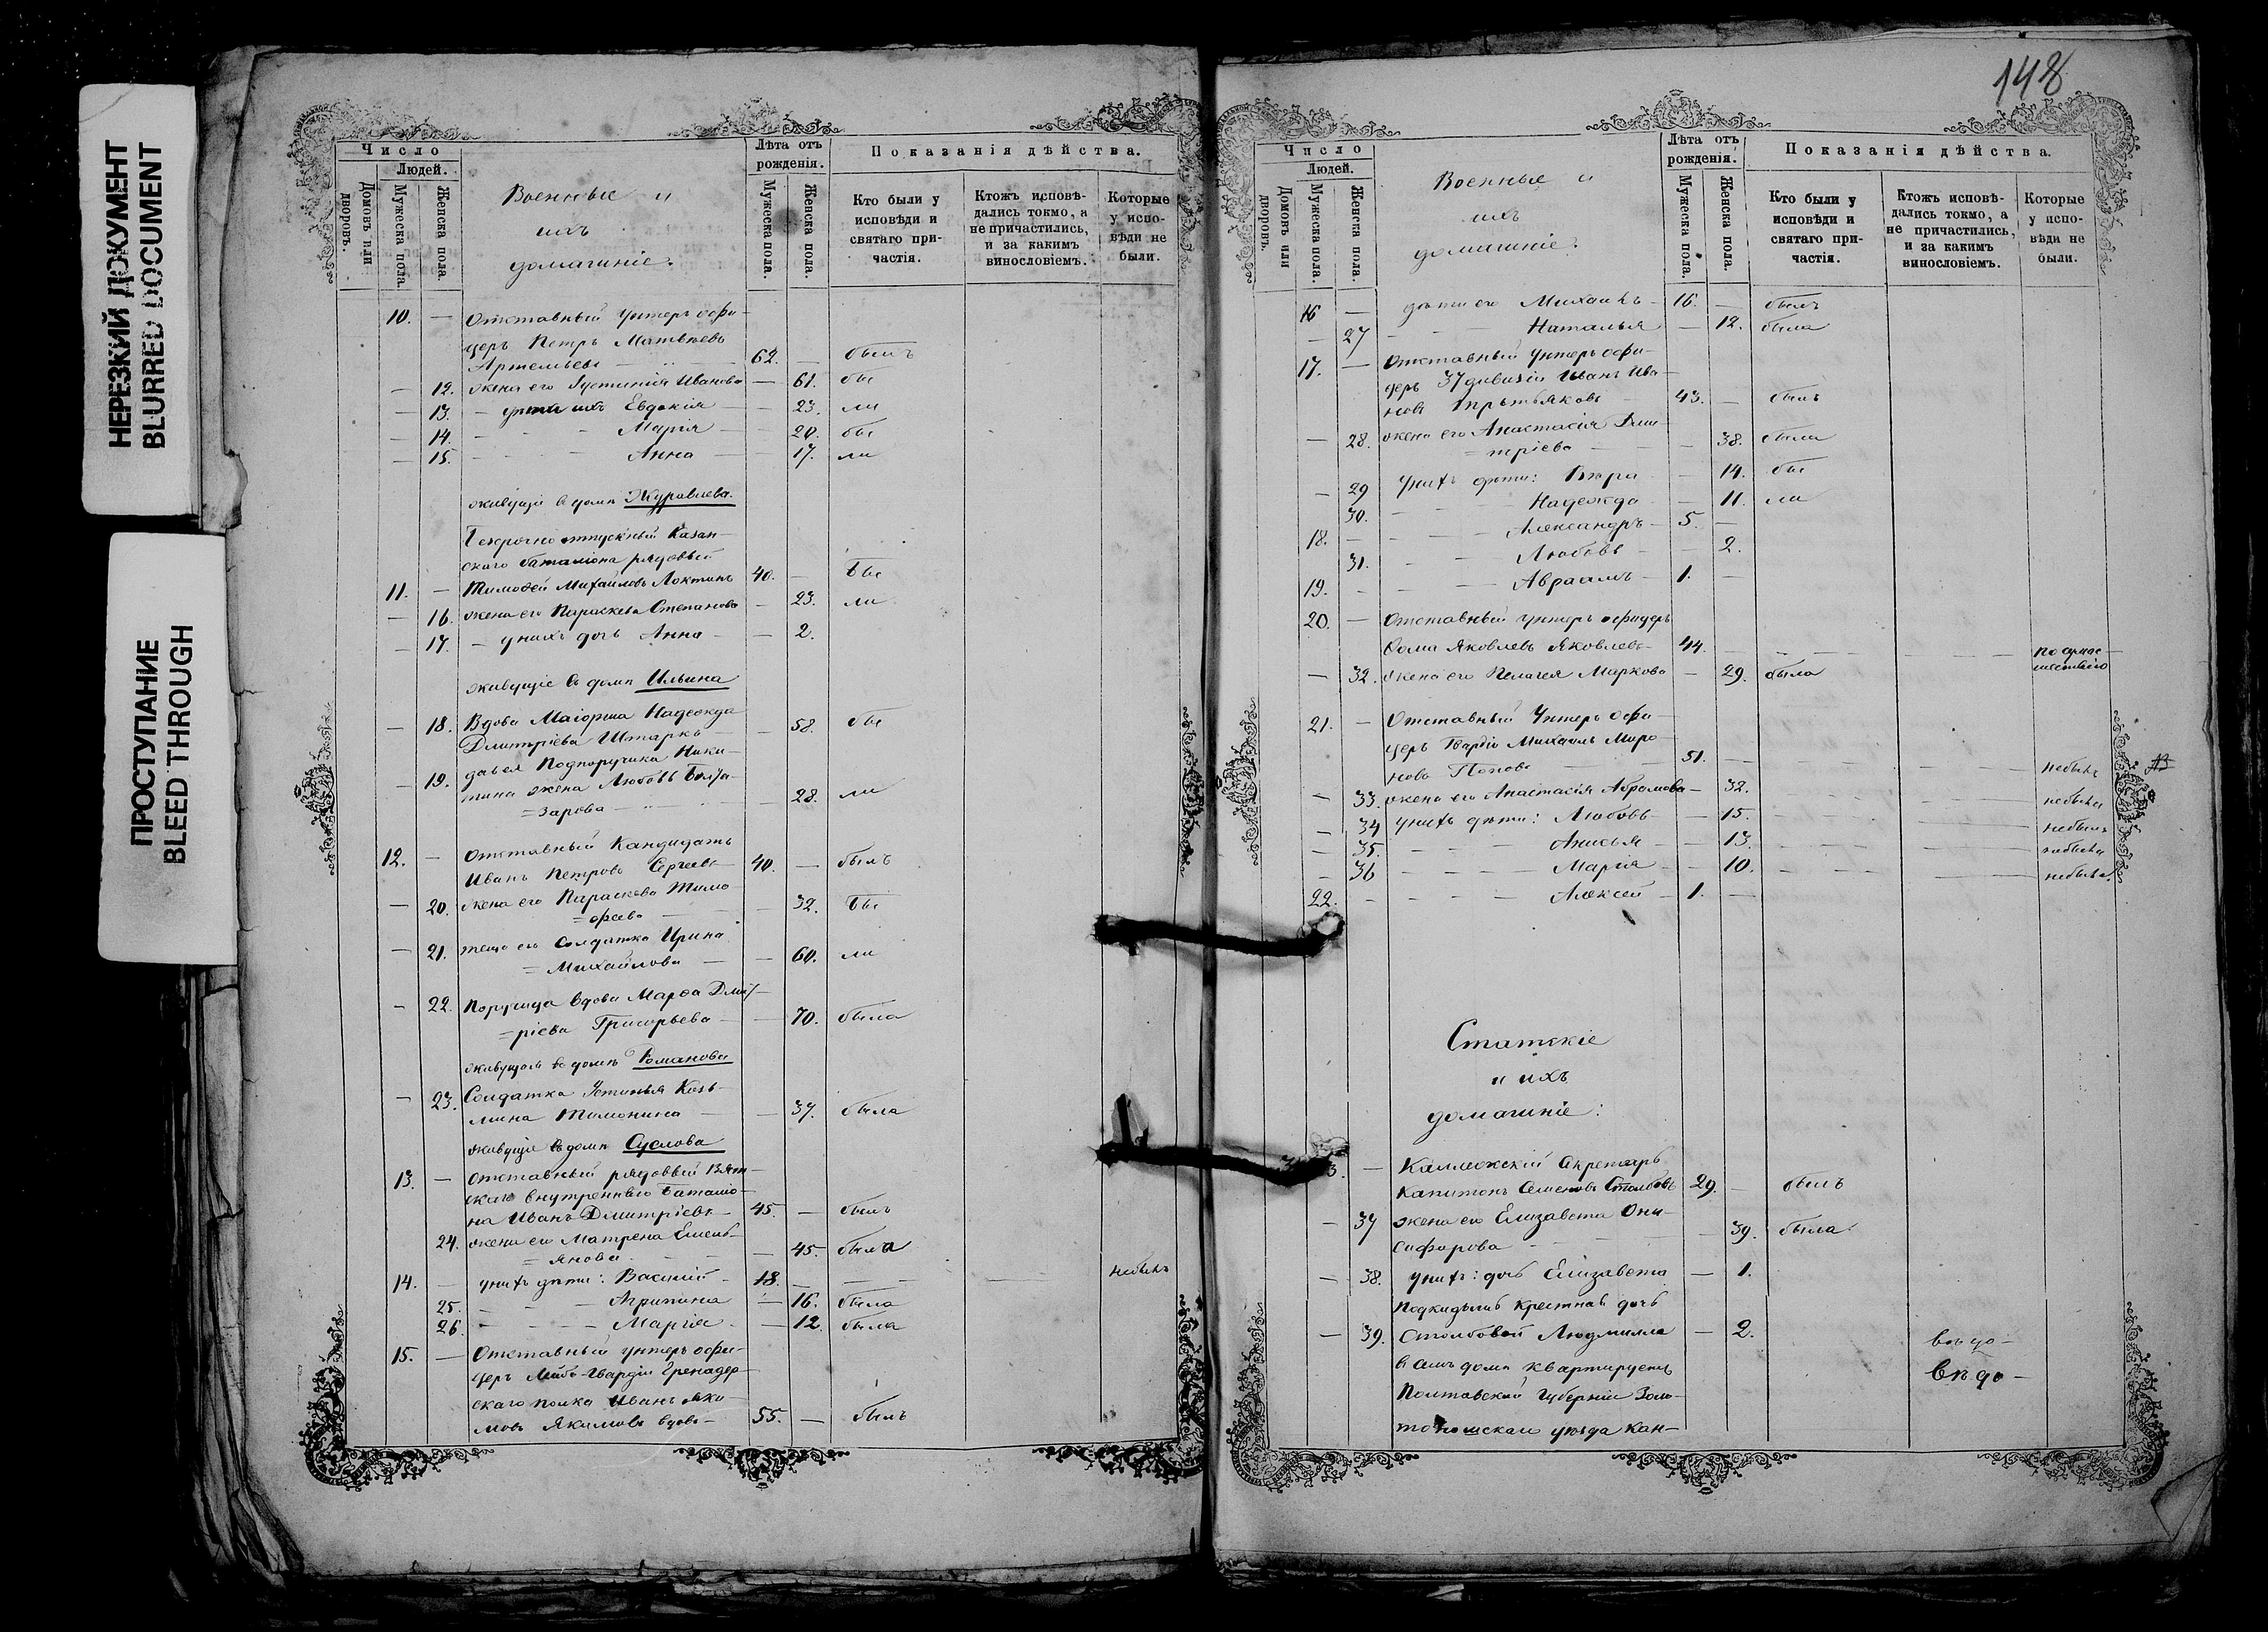 НЕРЕЗКИЙ ДОКУМЕНТ
BLURRED DOCUMENT
ПРОСТУПАНИЕ
BLEED THROUGH
Число
Людей.
Домовъ или дворовъ.
Мужеска пола.
Женска пола.
Военные и
ихъ
домашніе.
Лѣта отъ рожденія.
Мужеска пола.
Женска пола.
Показанія дѣйства.
Кто были у исповѣди и святаго причастія.
Ктожъ исповѣдались токмо, а не причастились, и за какимъ винословіемъ.
Которые у исповѣди не были.
10. — Отставный Унтеръ офи-
церъ Петръ Матвѣевъ
Артемьевъ 62. — былъ
— 12. жена его Іустинія Иванова — 61. бы
— 13. — дѣти ихъ Евдокія — 23. ли
— 14. - - - Марія — 20. бы
— 15. - - - Анна — 17. ли
живущіе въ домѣ Журавлева.
Безсрочно отпускный Казан-
скаго баталіона рядовый
11. — Тимоѳей Михайловъ Локтинъ 40. — бы
— 16. жена его Параскева Степанова — 23. ли
— 17. — у нихъ дочь Анна — 2.
живущіе въ домѣ Ильина
— 18. Вдова Маіорша Надежда
Дмитріева Штаркъ — 58. бы
— 19. дочь ея Подпоручика Ники-
тина жена Любовь Балта-
=зарова — 28. ли
12. — Отставный Кандидатъ
Иванъ Петровъ Сергѣевъ 40. — былъ
— 20. жена его Параскева Тимо
=фѣева — 32. бы
— 21. теща его Солдатка Ирина
=Михайлова — 60. ли
— 22. Поручица вдова Марѳа Дмит-
=ріева Григорьева — 70. была
живущая въ домѣ Романова
— 23. Солдатка Устинья Козь-
мина Тимонина — 37. была
живущіе въ домѣ Суслова
13. — Отставный рядовый Вят-
скаго внутренняго Баталіо-
на Иванъ Дмитріевъ 45. — былъ
24. жена его Матрена Емель-
=янова — 45. была
14. — у нихъ дѣти: Василій 18. — небылъ
25. - - Агрипина — 16. была
26. - - - Марія — 12. была
15. — Отставный Унтеръ офи-
церъ Лейбъ-Гвардіи Гренадер-
скаго полка Иванъ Яки-
мовъ Якимовъ вдовъ 55. — былъ
148
Число
Людей.
Домовъ или дворовъ.
Мужеска пола.
Женска пола.
Военные и
ихъ
домашніе.
Лѣта отъ рожденія.
Мужеска пола.
Женска пола.
Показанія дѣйства.
Кто были у исповѣди и святаго причастія.
Ктожъ исповѣдались токмо, а не причастились, и за какимъ винословіемъ.
Которые у исповѣди не были.
16 — дѣти его Михаилъ 16. — былъ
— 27 - - Наталья — 12. была
17. — Отставный Унтеръ офи-
церъ 37 дивизіи Иванъ Ива-
новъ Третьяковъ 43. — былъ
— 28. жена его Анастасія Дми-
=тріева — 38. была
— 29 У нихъ дѣти: Вѣра — 14. бы
30. - - - Надежда — 11. ли
18. — - - Александръ 5. —
31. - - Любовь — 2.
19. - - Авраамъ 1. —
20. — Отставный Унтеръ офицеръ
Ѳома Яковлевъ Яковлевъ 44. — по сумас-
шествію
— 32. жена его Пелагея Маркова — 29. была
21. — Отставный Унтеръ офи-
церъ Гвардіи Михаилъ Миро-
новъ Поповъ 51. — небылъ
— 33. жена его Анастасія Абрамова — 32. небыла
— 34 У нихъ дѣти: Любовь — 15. небыла
— 35. - - - Анисья — 13. небыла
— 36 - - - - Марія — 10. небыла.
22. - - - - Алексѣй 1. —
Статскіе
и ихъ
домашніе:
3. — Каллежскій Секретарь
Капитонъ Семеновъ Столбовъ 29. — былъ
— 37 жена его Елизавета Они-
сифорова — 39. была
— 38. у нихъ: дочь Елизавета — 1.
Подкидышъ крестная дочь
— 39. Столбовой Людмилла — 2.
въ домѣ квартируетъ
Полтавской Губерніи Золо-
тоношскаго уѣзда Кан-